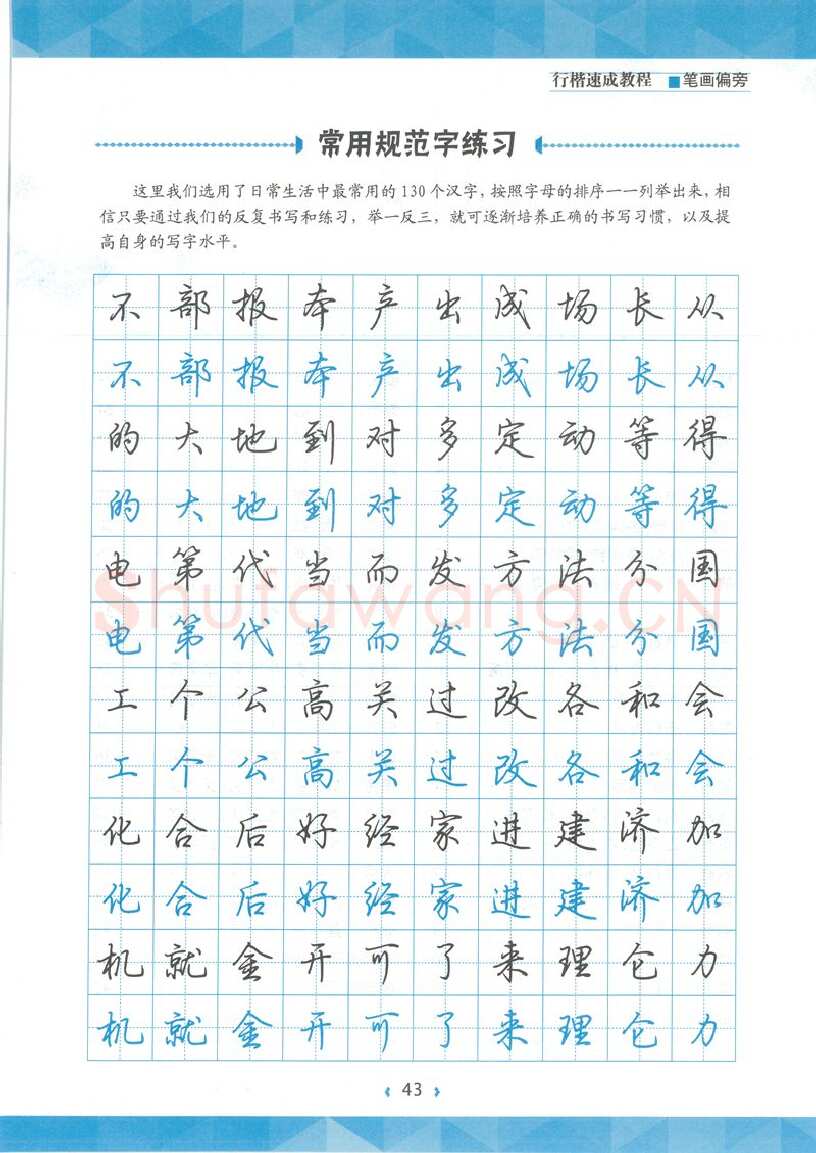 行楷速成教程 ■笔画偏旁
常用规范字练习
这里我们选用了日常生活中最常用的130个汉字，按照字母的排序一一列举出来，相
信只要通过我们的反复书写和练习，举一反三，就可逐渐培养正确的书写习惯，以及提
高自身的写字水平。
不部报本产出成场长从
不部报本产出成场长从
的大地到对多定动等得
的大地到对多定动等得
电第代当而发方法分国
电第代当而发方法分国
shufawang.CN
工个公高关过改各和会
工个公高关过改各和会
化合后好经家进建济加
化合后好经家进建济加
机就金开可了来理仑力
机就金开可了来理仑力
43